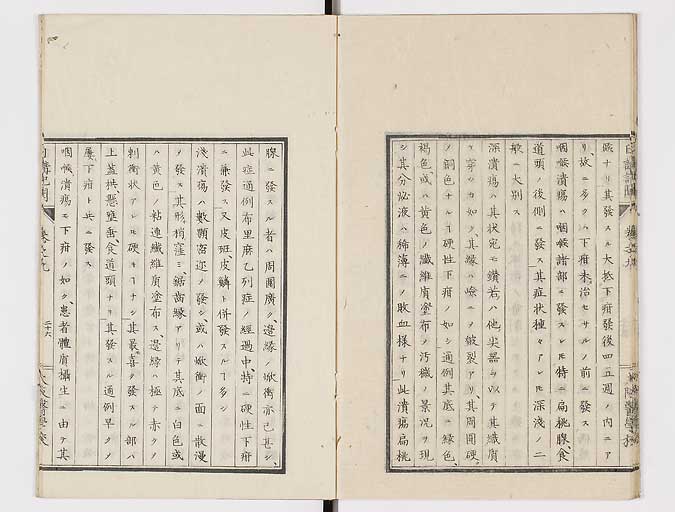 厥ナリ其發スル大抵下疳發後四五週ノ内ニア
リ故ニ多クハ下疳未治セサルノ前ニ發ス
咽喉潰瘍ハ咽喉諸部ニ發スレ𪜈特ニ扁桃腺、食
道頭、後側ニ發ス其症状種々アレ𪜈深淺ノ二
般ニ大別ス
深潰瘍ハ其状宛モ鑽若クハ他尖器ヲ以テ其織質
ヲ穿ツカ如ク其緣ハ嶮ニノ皺裂アリ其周圍硬
ノ銅色ナルヿ硬性下疳ノ如シ通例其底ニ綠色
褐色、或ハ黄色ノ纖維質塗布ノ汚穢ノ景况ヲ現
シ其分泌液ハ稀薄ニノ敗血様ナリ此潰瘍扁桃
腺ニ發スル者ハ周圍廣ク、邊緣ノ焮衝亦已甚シ
此症通例布里麻乙列症ノ經過中、特ニ硬性下疳
ニ兼發ス又皮斑、皮鱗ト併發スルヿ多シ
淺潰瘍ハ數顆密迩ノ發シ、或ハ焮衝ノ面ニ散漫
ノ發ス其形稍窪ミ、鋸齒緣アリテ其底ニ白色或
ハ黄色ノ粘連纖維質塗布ス、邊緣ハ極テ赤クノ
刺衝状アレ𪜈硬キヿナシ其最喜ク發スル部ハ
上蓋栱、懸壅垂、食道頭ナリ其發スル通例早クノ
屡下疳ト共ニ發ス
咽喉潰瘍モ下疳ノ如ク患者體質攝生ニ由テ其
日講記聞
卷之九
二十六
大阪醫學校